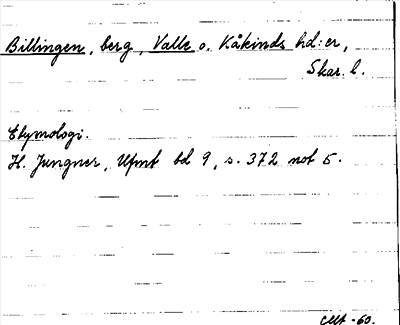 Billingen, berg, Valle o. Kåkinds hd:er,
Skar. l.
Etymologi.
H. Jungner, Ufmt bd 9, s. 372 not 5.
-60.